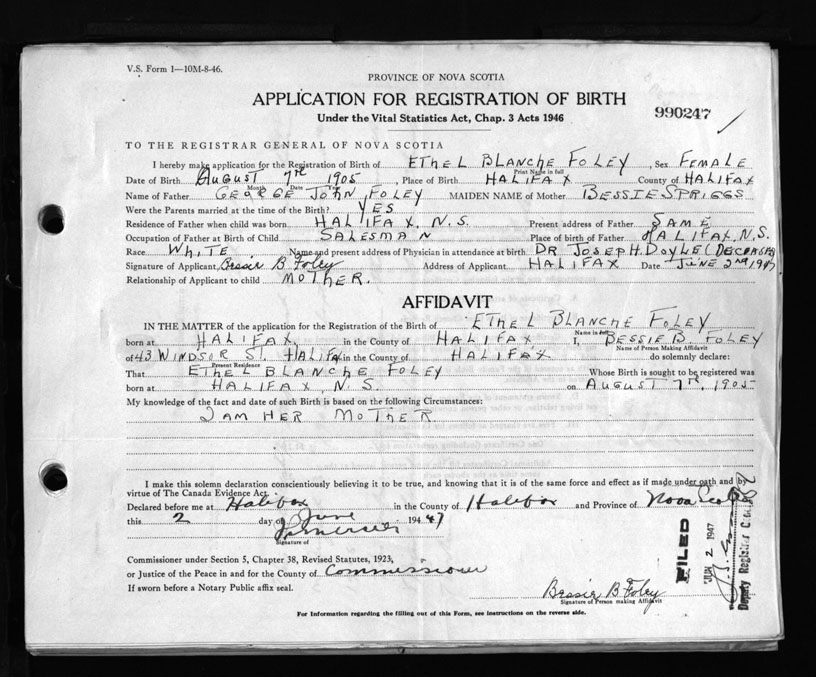 V.S. Form 1—10M-8-46.
PROVINCE OF NOVA SCOTIA
APPLICATION FOR REGISTRATION OF BIRTH
990247
Under the Vital Statistics Act, Chap. 3 Acts 1946
TO THE REGISTRAR GENERAL OF NOVA SCOTIA
I hereby make application for the Registration of Birth of ETHEL BLANCHE FOLEY, Sex FEMALE
Print Name in full
Date of Birth AUGUST 7TH 1905, Place of Birth HALIFAX County of HALIFAX
Month Date Year
Name of Father GEORGE JOHN FOLEY MAIDEN NAME of Mother BESSIE SPRIGGS
Were the Parents married at the time of the Birth? YES
Residence of Father when child was born HALIFAX, N.S. Present address of Father SAME
Occupation of Father at Birth of Child SALESMAN Place of birth of Father HALIFAX, N.S.
Race WHITE Name and present address of Physician in attendance at birth DR JOSEPH H. DOYLE
Signature of Applicant Bessie B Foley Address of Applicant HALIFAX Date JUNE 2ND 1947
Relationship of Applicant to child MOTHER.
AFFIDAVIT
IN THE MATTER of the application for the Registration of Birth of ETHEL BLANCHE FOLEY
Name in full
born at HALIFAX, in the County of HALIFAX I, BESSIE B. FOLEY
Name of Person Making Affidavit
of 43 WINDSOR ST. HALIFAX in the County of HALIFAX do solemnly declare:
Present Residence
That ETHEL BLANCHE FOLEY Whose Birth is sought to be registered was
born at HALIFAX, N.S. on AUGUST 7TH, 1905
My knowledge of the fact and date of such Birth is based on the following Circumstances:
I AM HER MOTHER
I make this solemn declaration conscientiously believing it to be true, and knowing that it is of the same force and effect as if made under oath and by
virtue of The Canada Evidence Act.
Declared before me at Halifax in the County of Halifax and Province of Nova Scotia
this 2 day of June 1947
Signature of
Commissioner under Section 5, Chapter 38, Revised Statutes, 1923,
or Justice of the Peace in and for the County of Commissioner
If sworn before a Notary Public affix seal.
Bessie B Foley
Signature of Person making Affidavit
FILED
JUN 2 1947
Deputy Registrar General
For Information regarding the filling out of this Form, see instructions on the reverse side.